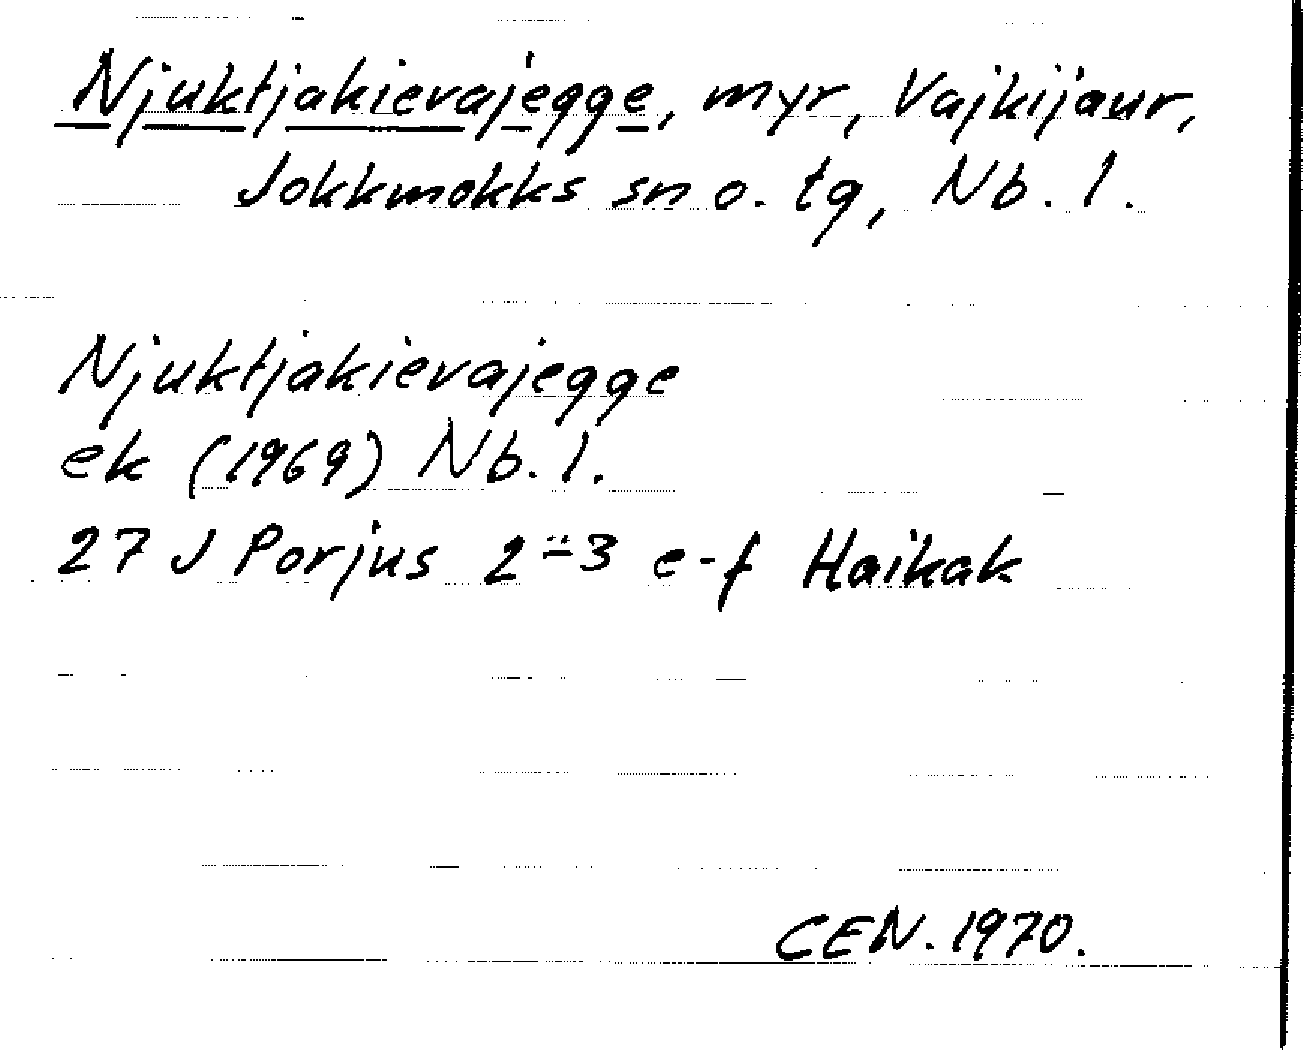 Njuktjakievajegge, myr, Vajkijaur,
Jokkmokks sn o. tg, Nb. l.
Njuktjakievajegge
ek (1969) Nb. l.
27 J Porjus 2-3 e-f Haikak
CEN. 1970.